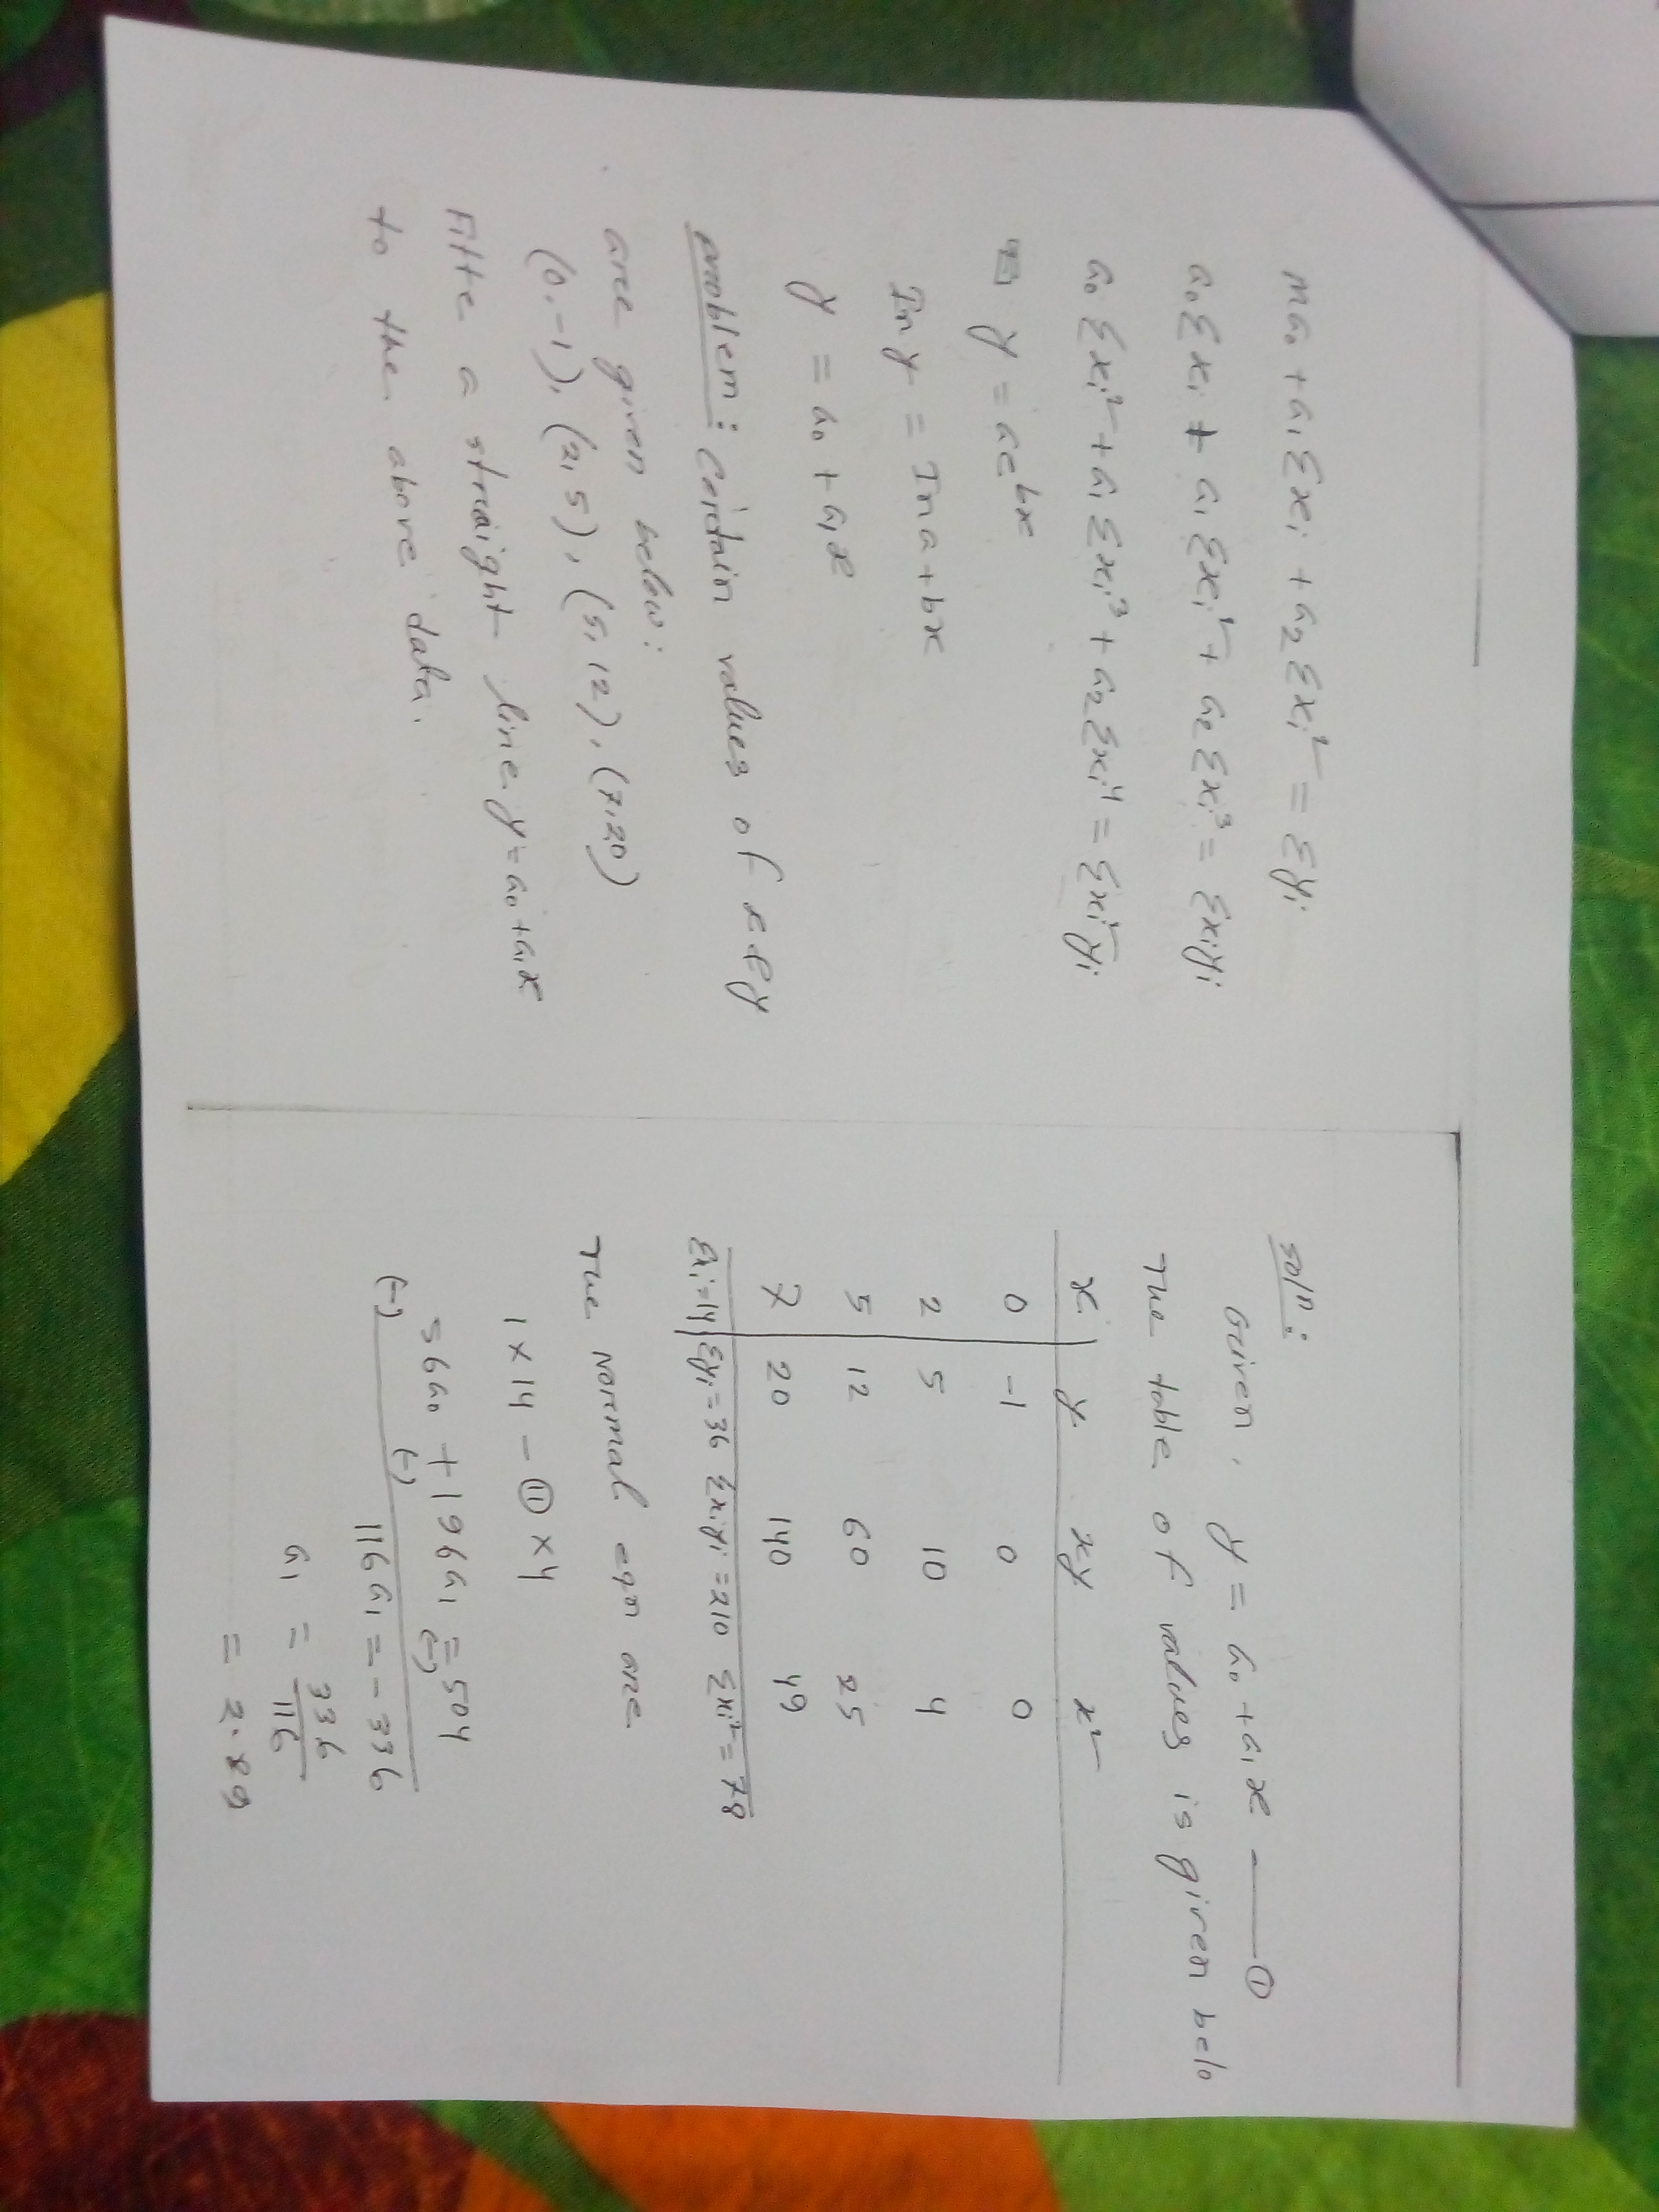 ma₀ + a₁ Σxi + a₂ Σxi² = Σyi
a₀ Σxi + a₁ Σxi² + a₂ Σxi³ = Σxiyi
a₀ Σxi² + a₁ Σxi³ + a₂ Σxi⁴ = Σxi²yi
y = ae^bx
In y = In a + bx
y = a₀ + a₁x
problem: Certain values of x & y
are given below:
(0,-1), (2,5), (5,12), (7,20)
Fitte a straight line y = a₀ + a₁x
to the above data.
soln:
Given, y = a₀ + a₁x —— ①
The table of values is given belo
x y xy x²
0 -1 0 0
2 5 10 4
5 12 60 25
7 20 140 49
Σxi=14 Σyi=36 Σxiyi=210 Σxi²=78
The Normal eqn are
1 × 14 - ⑪ × 4
56a₀ + 196a₁ = 504
(-) (-) (-)
116a₁ = -336
a₁ = 336/116
= 2.89